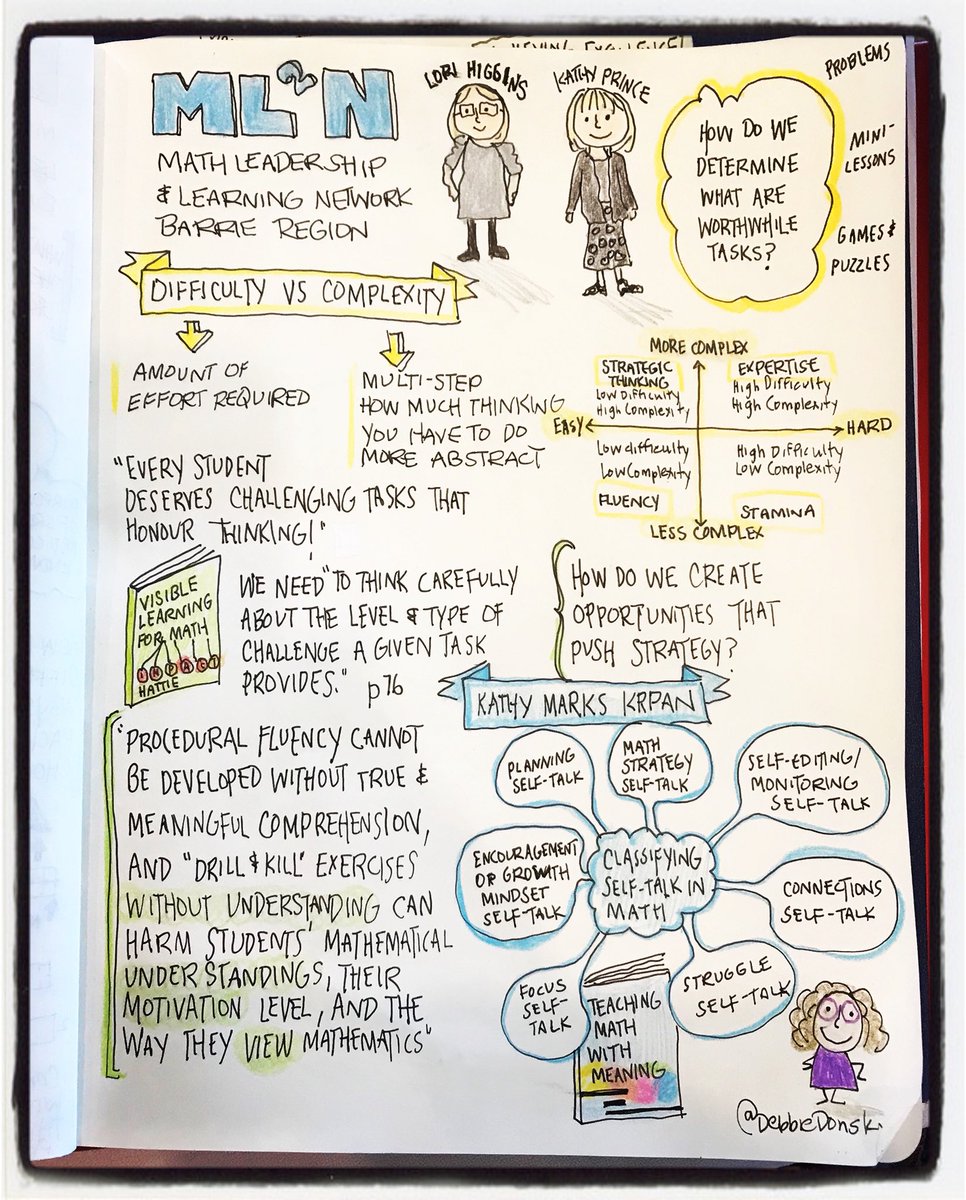 ML²N
MATH LEADERSHIP
& LEARNING NETWORK
BARRIE REGION
LORI HIGGINS
KATHY PRINCE
HOW DO WE
DETERMINE
WHAT ARE
WORTHWHILE
TASKS?
PROBLEMS
MINI-
LESSONS
GAMES &
PUZZLES
DIFFICULTY VS COMPLEXITY
AMOUNT OF
EFFORT REQUIRED
MULTI-STEP
HOW MUCH THINKING
YOU HAVE TO DO
MORE ABSTRACT
MORE COMPLEX
STRATEGIC
THINKING
Low Difficulty
High Complexity
EXPERTISE
High Difficulty
High Complexity
EASY
HARD
Low difficulty
Low Complexity
FLUENCY
High Difficulty
Low Complexity
STAMINA
LESS COMPLEX
"EVERY STUDENT
DESERVES CHALLENGING TASKS THAT
HONOUR THINKING!"
VISIBLE
LEARNING
FOR MATH
IMPACT
HATTIE
WE NEED "TO THINK CAREFULLY
ABOUT THE LEVEL & TYPE OF
CHALLENGE A GIVEN TASK
PROVIDES." p76
HOW DO WE CREATE
OPPORTUNITIES THAT
PUSH STRATEGY?
"PROCEDURAL FLUENCY CANNOT
BE DEVELOPED WITHOUT TRUE &
MEANINGFUL COMPREHENSION,
AND "DRILL & KILL" EXERCISES
WITHOUT UNDERSTANDING CAN
HARM STUDENTS' MATHEMATICAL
UNDERSTANDINGS, THEIR
MOTIVATION LEVEL, AND THE
WAY THEY VIEW MATHEMATICS"
KATHY MARKS KRPAN
PLANNING
SELF-TALK
MATH
STRATEGY
SELF-TALK
SELF-EDITING/
MONITORING
SELF-TALK
ENCOURAGEMENT
OR GROWTH
MINDSET
SELF-TALK
CLASSIFYING
SELF-TALK IN
MATH
CONNECTIONS
SELF-TALK
FOCUS
SELF-
TALK
STRUGGLE
SELF-TALK
TEACHING
MATH
WITH
MEANING
@DebbieDonsk